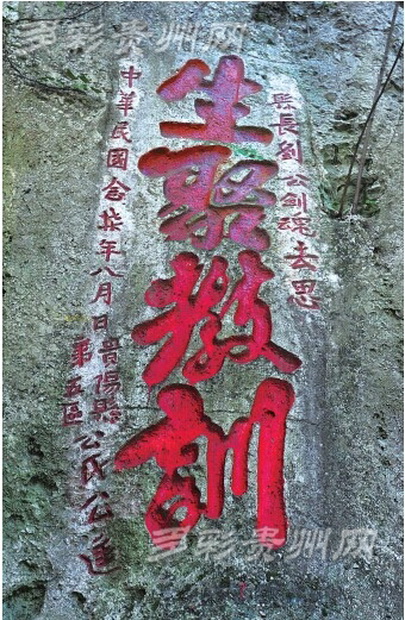 多彩贵州网
縣長劉公劍魂去思
生聚教訓
中華民國念柒年八月日貴陽縣
第五區
公民公
多彩贵州网